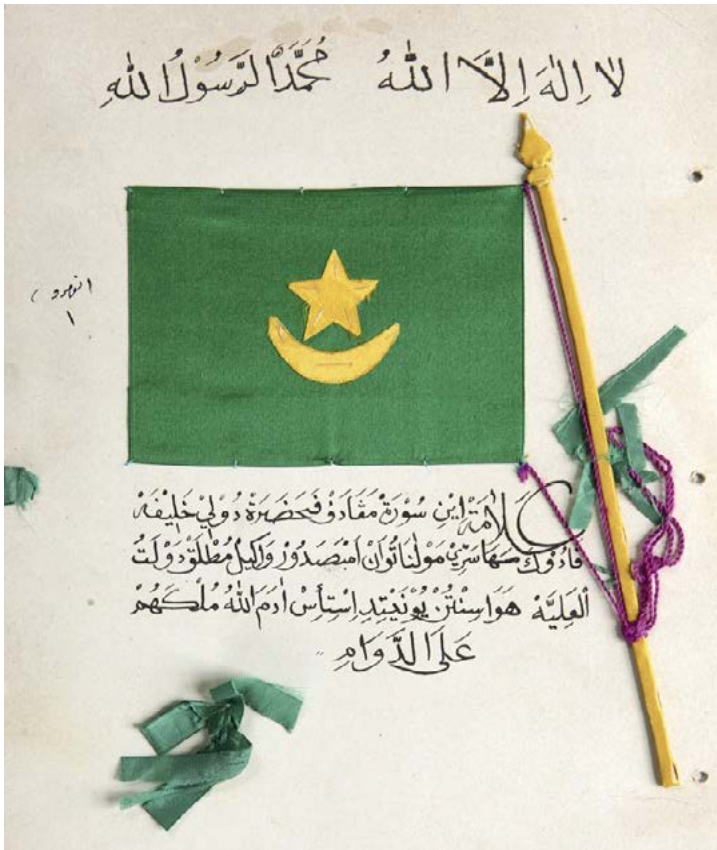 لَا اِلٰهَ اِلَّا اللهُ مُحَمَّدًا الرَّسُوْلُ اللهِ
١
عَلَامَةْ اَيْنِ سُوْرَةْ مَقَادَفْ فَحَضَرَةْ دُوْلِيْ خَلِيْفَهْ
فَادُوْكَ سَهَاسَرِيْ مَوْلَنَا تُوَانْ اَمْبَصَدُوْرْ وَاكِيْلْ مُطْلَقْ دَوْلَتُ
الْعَلِيَّةْ هَوَاسِنْتُنْ يُوْنَيْتِدِ اِسْتِأَسْ اَدَمَ اللهُ مُلْكَهُمْ
عَلَى الدَّوَامِ